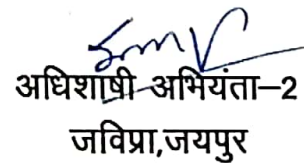 अधिशाषी अभियंता–2
जविप्रा,जयपुर